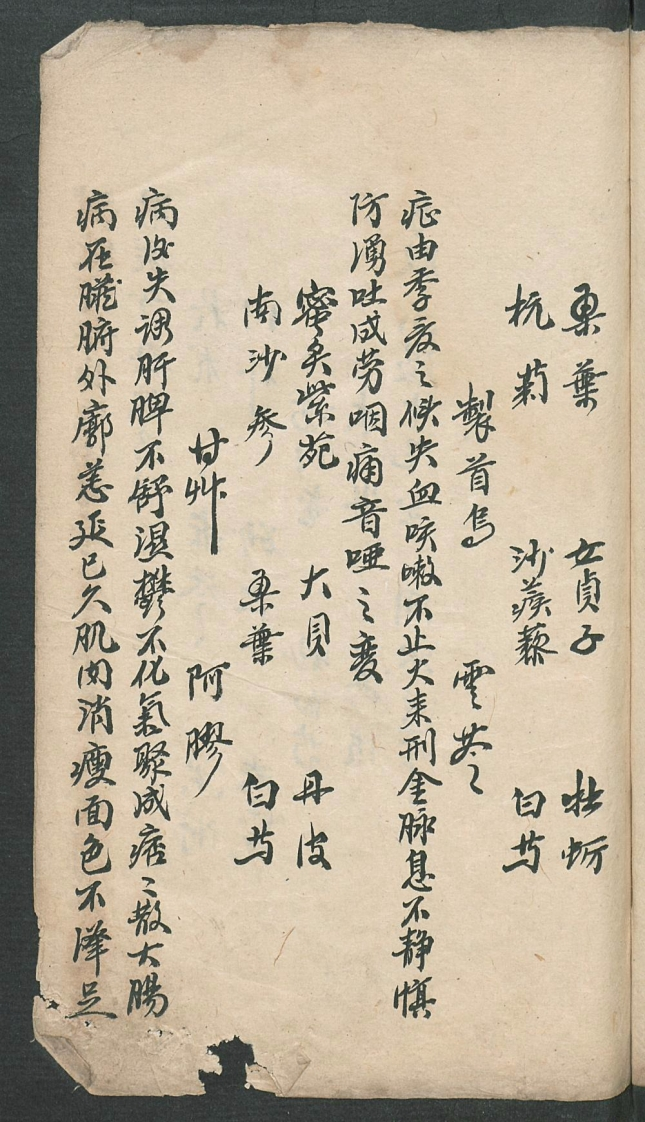 桑葉 女貞子 牡蛎
杭菊 沙蒺藜 白芍
製首烏 雲苓
症由季夏之候失血咳嗽不止火来刑金脉息不静慎
防湧吐成劳咽痛音哑之变
蜜炙紫苑 大貝 丹皮
南沙參 桑葉 白芍
甘艸 阿膠
病後失调肝脾不舒湿鬱不化氣聚成痞〻散大腸
病在臟腑外廓恙延已久肌肉消瘦面色不澤足